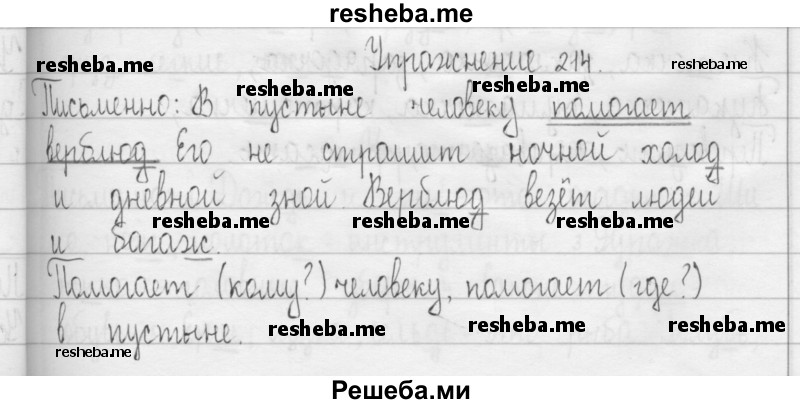 resheba.me
Упражнение 214.
resheba.me
resheba.me
Письменно: В пустыне человеку помогает
resheba.me
resheba.me
верблюд Его не страшит ночной холод
и дневной зной Верблюд везёт людей
resheba.me
resheba.me
resheba.me
и багаж.
Помогает (кому?) человеку, помогает (где?)
в пустыне.
resheba.me
resheba.me
resheba.me
resheba.me
Решеба.ми